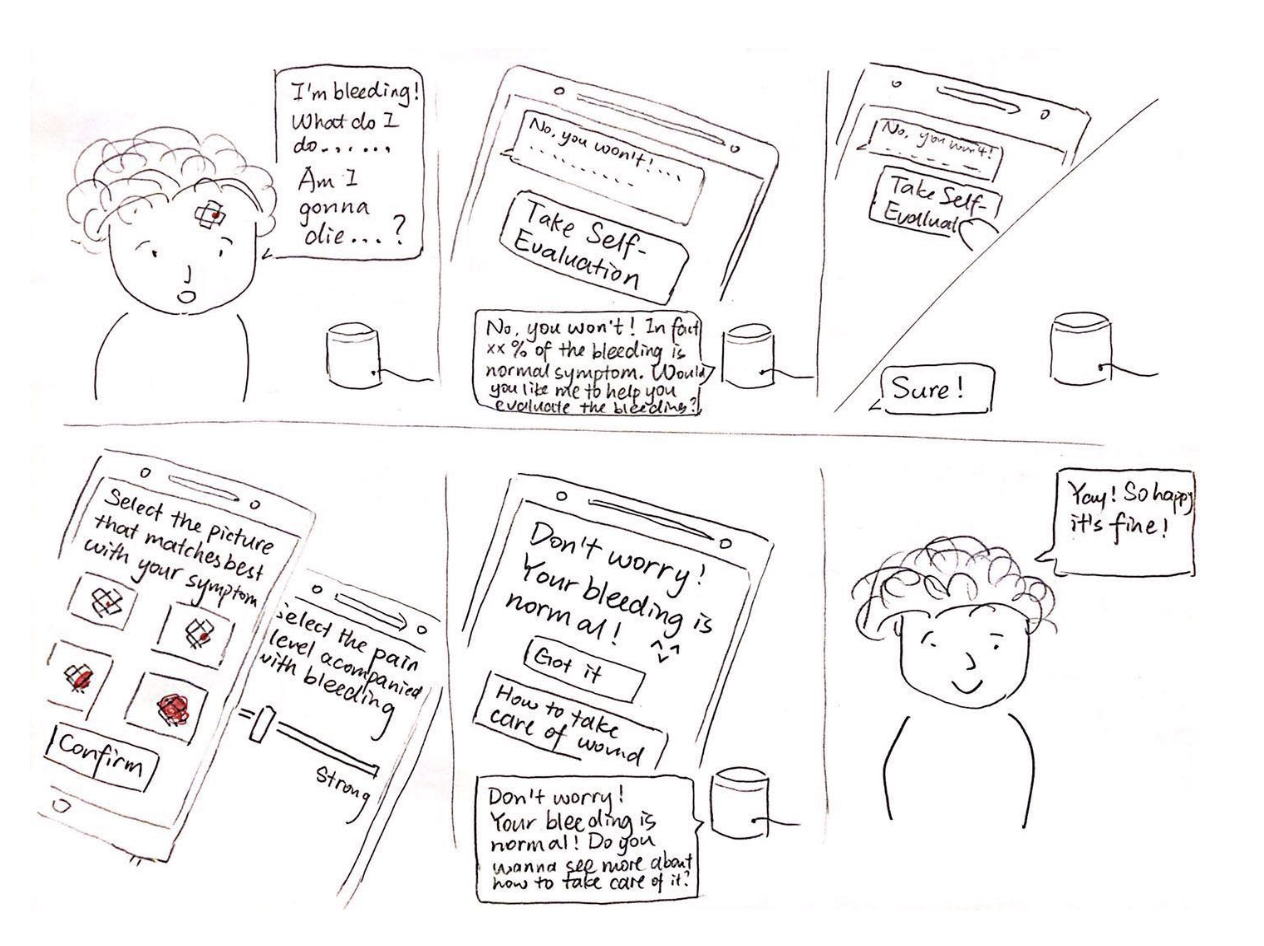 I'm bleeding!
What do I
do.......
Am I
gonna
die...?
No, you won't!....
Take Self-
Evaluation
No, you won't! In fact
xx % of the bleeding is
normal symptom. Would
you like me to help you
evaluate the bleeding?
No, you won't!
Take Self-
Evaluat
Sure!
Select the picture
that matches best
with your symptom
Confirm
Select the pain
level acompanied
with bleeding
Strong
Don't worry!
Your bleeding is
normal!
Got it
How to take
care of wound
Don't worry!
Your bleeding is
normal! Do you
wanna see more about
how to take care of it?
Yay! So happy
it's fine!